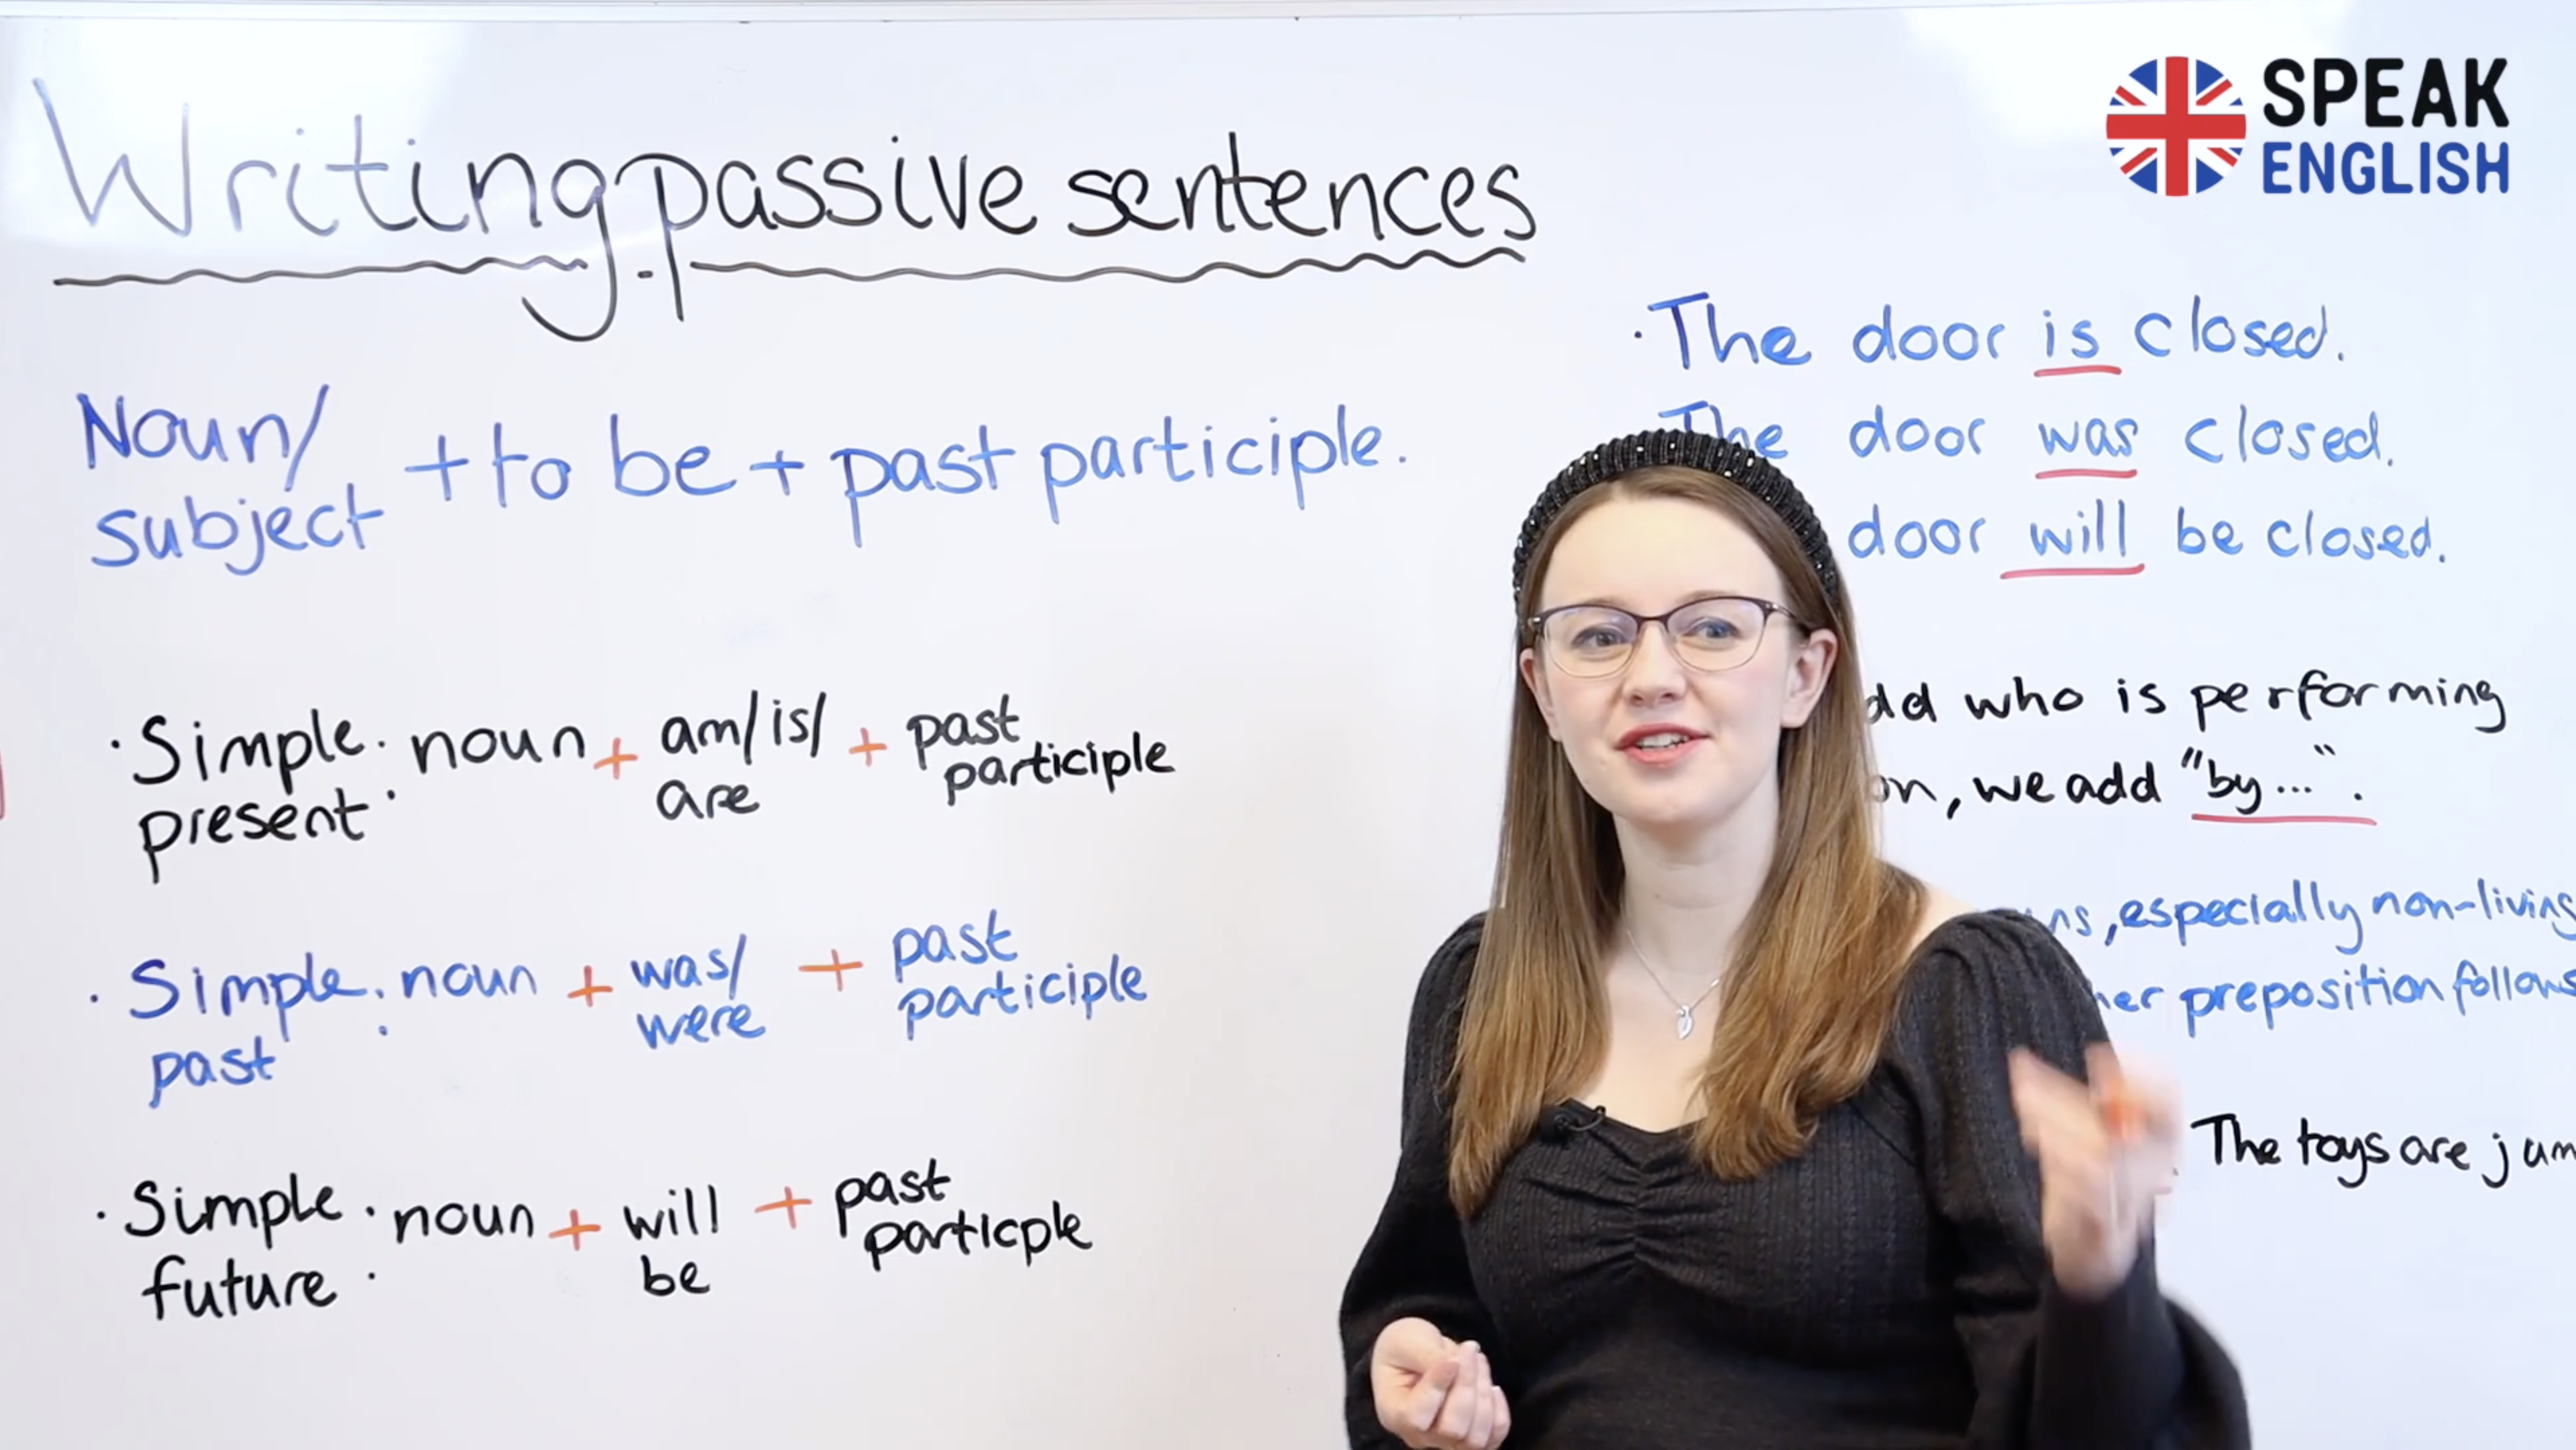 Writing passive sentences
Noun/
subject + to be + past participle.
· Simple : noun + am/is/ + past
present are participle
· Simple : noun + was/ + past
past were participle
· Simple : noun + will + past
future be particple
SPEAK
ENGLISH
· The door is closed.
The door was closed.
door will be closed.
who is performing
, we add "by...".
, especially non-living
preposition follows
The toys are